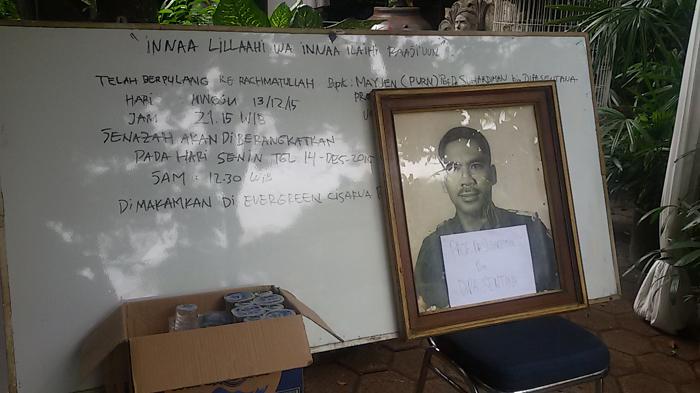 "INNAA LILLAAHI WA INNAA ILAIHI RAAJI'UUN"
TELAH BERPULANG KE RACHMATULLAH Bpk. MAYJEN (PURN) SUHARDIMAN bin DIPASENTANA
HARI : MINGGU 13/12/15
JAM 21.15 WIB
JENAZAH AKAN DIBERANGKATKAN
PADA HARI SENIN TGL 14-DES-2015
JAM : 12.30 WIB
DIMAKAMKAN DI EVERGREEN CISARUA
bin